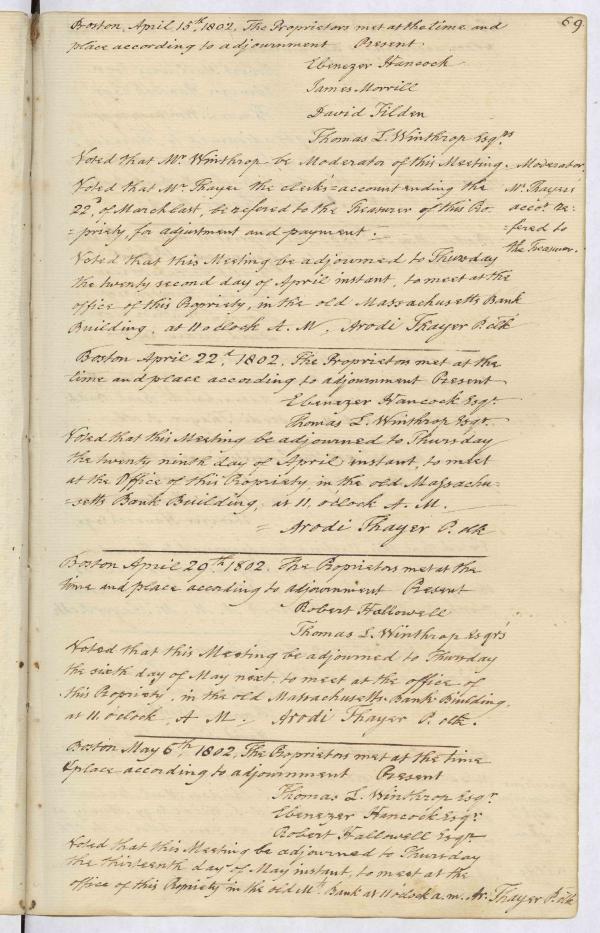 69
Boston, April 15th, 1802. The Proprietors met at the time and
place according to adjournment Present
Ebenezer Hancock
James Morrill
David Tilden
Thomas L. Winthrop Esqrs
Voted that Mr. Winthrop be Moderator of this Meeting. Moderator.
Voted that Mr. Thayer the clerk's account ending the
22d. of March last, be refered to the Treasurer of this Pro-
=priety, for adjustment and payment.
Mr. Thayers
acco. re-
=fered to
the Treasurer.
Voted that this Meeting be adjourned to Thursday
the twenty second day of April instant, to meet at the
office of this Propriety, in the old Massachusetts Bank
Building, at 11 oclock A. M. Arodi Thayer P. clk
Boston April 22d. 1802. The Proprietors met at the
time and place according to adjournment Present
Ebenezer Hancock Esqr.
Thomas L. Winthrop Esqr.
Voted that this Meeting be adjourned to Thursday
the twenty ninth day of April instant, to meet
at the Office of this Propriety in the old Massachu-
=setts Bank Building, at 11. oclock A. M.
= Arodi Thayer P. clk
Boston April 29th. 1802. The Proprietors met at the
time and place according to adjournment Present
Robert Hallowell
Thomas L. Winthrop Esqr's
Voted that this Meeting be adjourned to Thursday
the sixth day of May next, to meet at the office of
this Propriety, in the old Massachusetts Bank Building.
at 11. oclock, A. M. Arodi Thayer P. clk.
Boston May 6th 1802, The Proprietors met at the time
& place according to adjournment Present
Thomas L. Winthrop Esqr.
Ebenezer Hancock Esqr
Robert Hallowell Esqr.
Voted that this Meeting be adjourned to Thursday
the thirteenth day of May instant, to meet at the
office of this Propriety in the old Ms. Bank at 11 oclock a.m. Ar: Thayer P. clk